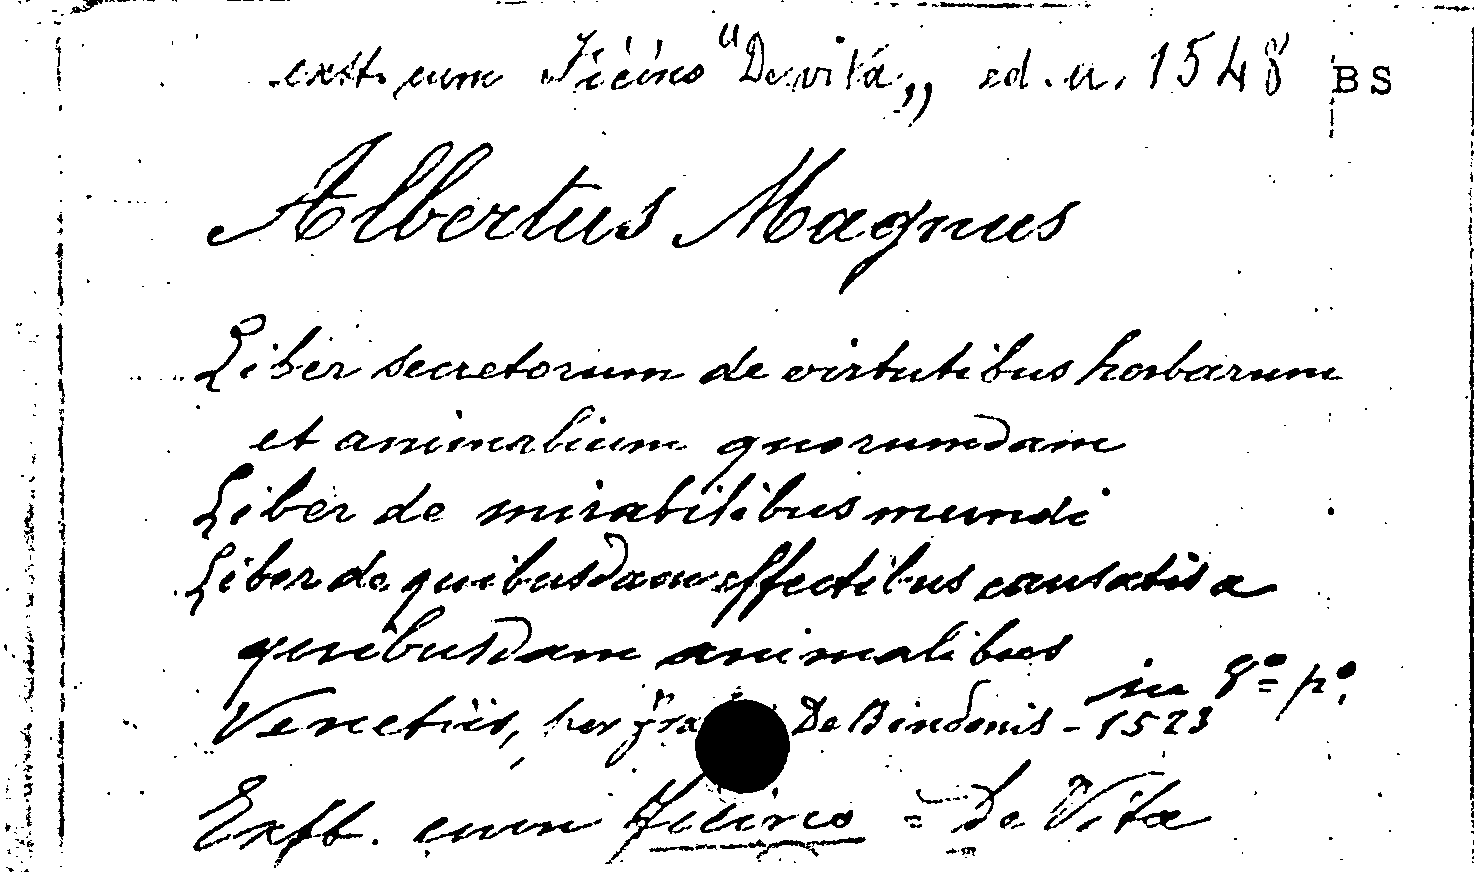 extt. cum Ficino "De vita„ ed. a. 1548 BS
Albertus Magnus
Liber secretorum de virtutibus herbarum
et animalium quorumdam
Liber de mirabilibus mundi
Liber de quibusdam effectibus causatis a
quibusdam animalibus
in 8º pº.
Venetiis, per Fra De Bindonis - 1523
Extt. cum Ficino = De Vita